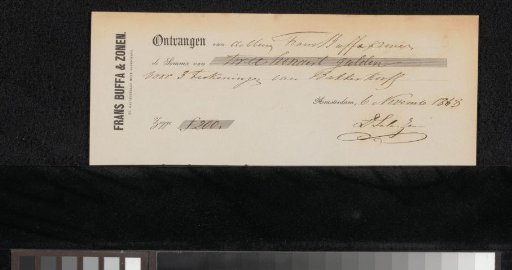 FRANS BUFFA & ZONEN.
Ontvangen van de Heer Frans Buffa & Zonen
de Somma van twee honderd gulden
voor 3 teekeningen van Bakkerkorff
Amsterdam, 6 November 1863
Zegge ƒ 200.